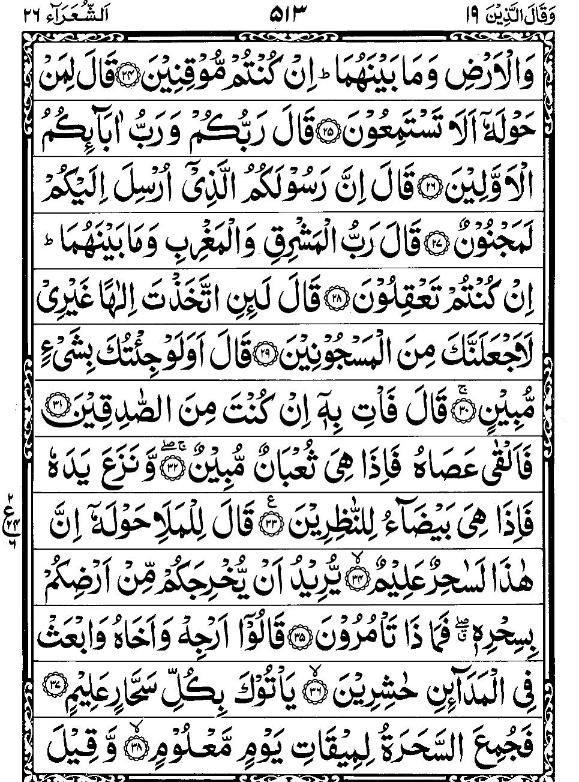 وَقَالَ الَّذِيْنَ ١٩ ٥١٣ اَلشُّعَرَآء ٢٦
وَالْاَرْضِ وَمَا بَيْنَهُمَا ؕ اِنْ كُنْتُمْ مُّوْقِنِيْنَ ۝۲۴ قَالَ لِمَنْ
حَوْلَهٗۤ اَلَا تَسْتَمِعُوْنَ ۝۲۵ قَالَ رَبُّكُمْ وَرَبُّ اٰبَآئِكُمُ
الْاَوَّلِيْنَ ۝۲۶ قَالَ اِنَّ رَسُوْلَكُمُ الَّذِيْۤ اُرْسِلَ اِلَيْكُمْ
لَمَجْنُوْنٌ ۝۲۷ قَالَ رَبُّ الْمَشْرِقِ وَالْمَغْرِبِ وَمَا بَيْنَهُمَا ؕ
اِنْ كُنْتُمْ تَعْقِلُوْنَ ۝۲۸ قَالَ لَئِنِ اتَّخَذْتَ اِلٰهًا غَيْرِيْ
لَاَجْعَلَنَّكَ مِنَ الْمَسْجُوْنِيْنَ ۝۲۹ قَالَ اَوَلَوْ جِئْتُكَ بِشَيْءٍ
مُّبِيْنٍ ۝۳۰ۚ قَالَ فَاْتِ بِهٖۤ اِنْ كُنْتَ مِنَ الصّٰدِقِيْنَ ۝۳۱
فَاَلْقٰى عَصَاهُ فَاِذَا هِيَ ثُعْبَانٌ مُّبِيْنٌ ۝۳۲ۚۖ وَّنَزَعَ يَدَهٗ
فَاِذَا هِيَ بَيْضَآءُ لِلنّٰظِرِيْنَ ۝۳۳ع قَالَ لِلْمَلَاِ حَوْلَهٗۤ اِنَّ
هٰذَا لَسٰحِرٌ عَلِيْمٌ ۝۳۴ۙ يُّرِيْدُ اَنْ يُّخْرِجَكُمْ مِّنْ اَرْضِكُمْ
بِسِحْرِهٖ ۖۗ فَمَاذَا تَاْمُرُوْنَ ۝۳۵ قَالُوْۤا اَرْجِهْ وَاَخَاهُ وَابْعَثْ
فِي الْمَدَآئِنِ حٰشِرِيْنَ ۝۳۶ۙ يَاْتُوْكَ بِكُلِّ سَحَّارٍ عَلِيْمٍ ۝۳۷
فَجُمِعَ السَّحَرَةُ لِمِيْقَاتِ يَوْمٍ مَّعْلُوْمٍ ۝۳۸ۙ وَّقِيْلَ